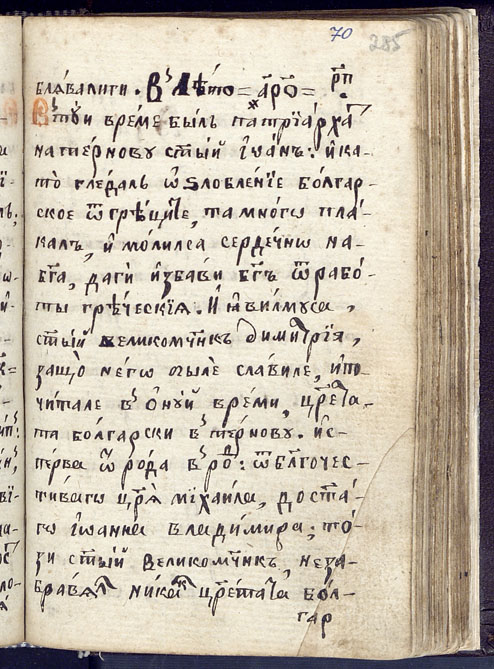 70 285
блѧвалиги . В᾽ лѣто = ҂арѻ҃ = рп҃
В᾽ туи време былъ патрїархъ
на терновꙋ ст҃ый іѡанъ : и ка-
то гледалъ ѡѕлобленїе болгар-
ское ѿ грѣците, та многѡ пла-
калъ, и молилсѧ сердечнѡ на
бг҃а, да ги избави бг҃ъ ѿ рабо-
ты грѣческїѧ . И ꙗвилмꙋсѧ ,
ст҃ый великомч҃нкъ димитрїѧ ,
защо негѡ были славиле, и по-
читале в᾽ онуй времи, цр҃ета-
та болгарски в᾽ тернову . ис-
перва ѿ рода в᾽ род : ѿ бл҃гочес-
тивагѡ цр҃ѧ міхаила, до ст҃а-
гѡ іѡанна владимира ; то-
зи ст҃ый великомч҃нкъ, неза-
бравѧл никои цр҃етата бол-
гар